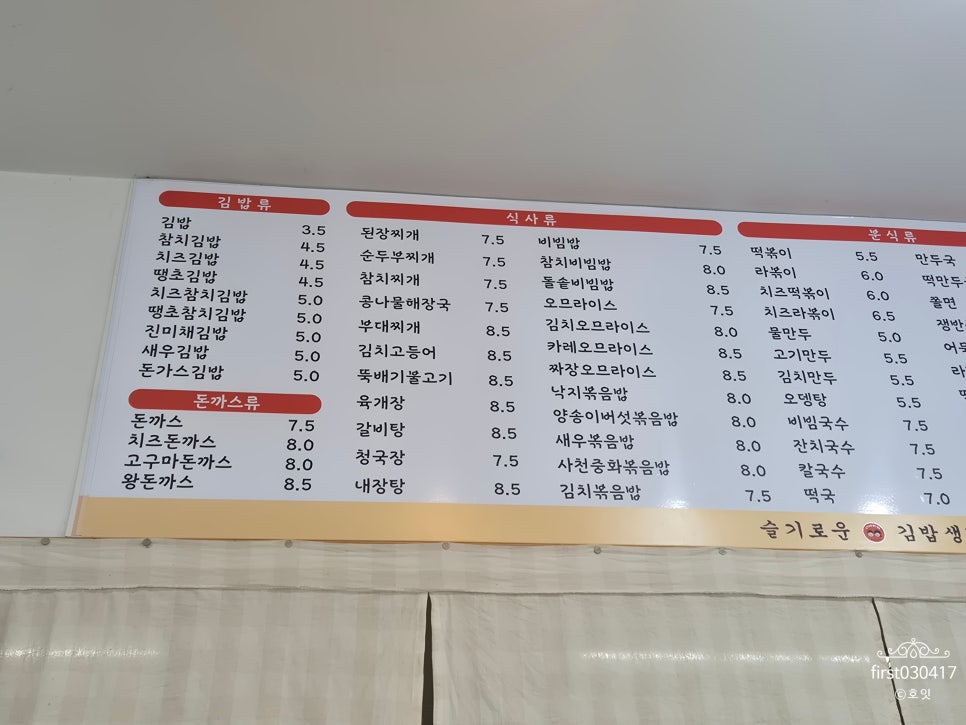 김밥류
김밥 3.5
참치김밥 4.5
치즈김밥 4.5
땡초김밥 4.5
치즈참치김밥 5.0
땡초참치김밥 5.0
진미채김밥 5.0
새우김밥 5.0
돈가스김밥 5.0
돈까스류
돈까스 7.5
치즈돈까스 8.0
고구마돈까스 8.0
왕돈까스 8.5
식사류
된장찌개 7.5
순두부찌개 7.5
참치찌개 7.5
콩나물해장국 7.5
부대찌개 8.5
김치고등어 8.5
뚝배기불고기 8.5
육개장 8.5
갈비탕 8.5
청국장 7.5
내장탕 8.5
비빔밥 7.5
참치비빔밥 8.0
돌솥비빔밥 8.5
오므라이스 7.5
김치오므라이스 8.0
카레오므라이스 8.5
짜장오므라이스 8.5
낙지볶음밥 8.0
양송이버섯볶음밥 8.0
새우볶음밥 8.0
사천중화볶음밥 8.0
김치볶음밥 7.5
분식류
떡볶이 5.5
라볶이 6.0
치즈떡볶이 6.0
치즈라볶이 6.5
물만두 5.0
고기만두 5.5
김치만두 5.5
오뎅탕 5.5
비빔국수 7.5
잔치국수 7.5
칼국수 7.5
떡국 7.0
만두국
떡만두
쫄면
쟁반
슬기로운 김밥생
first030417
©호잇